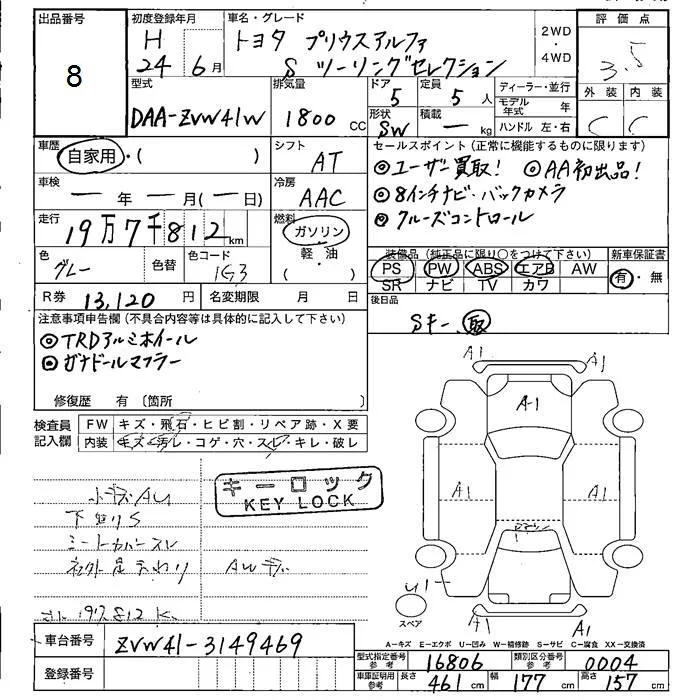 出品番号
8
初度登録年月
H
24 6月
車名・グレード
トヨタ プリウスアルファ
S ツーリングセレクション
2WD
・
4WD
評価点
3.5
外装 内装
C C
型式
DAA-ZVW41W
排気量
1800 CC
ドア
5
定員
5 人
形状
SW
積載
— kg
ディーラー・並行
モデル年式 年
ハンドル 左・右
車歴
自家用・( )
シフト
AT
車検
— 年 — 月(— 日)
冷房
AAC
走行
19万7千812km
燃料
ガソリン
軽・油
( )
色
グレー
色替
色コード
1G3
R券 13,120 円
名変期限 月 日
セールスポイント(正常に機能するものに限ります)
◎ユーザー買取! ◎AA初出品!
◎8インチナビ・バックカメラ
◎クルーズコントロール
装備品(純正品に限り○をつけて下さい)
PS PW ABS エアB AW
SR ナビ TV カワ
新車保証書
有・無
後日品
Sキー 取
注意事項申告欄(不具合内容等は具体的に記入して下さい)
◎TRDアルミホイール
◎ガナドールマフラー
修復歴 有〔箇所 〕
検査員
記入欄
FW キズ・飛石・ヒビ割・リペア跡・X要
内装 キズ・汚レ・コゲ・穴・スレ・キレ・破レ
キーロック
KEY LOCK
下廻りS
シートカバースレ
A1 A1
A-1
A1 A1
U1
A1 A1
スペア
A-キズ E-エクボ U-凹み W-補修跡 S-サビ C-腐食 XX-交換済
車台番号 ZVW41-3149469
登録番号
型式指定番号
参考
16806
類別区分番号
参考
0004
車庫証明用
参考
長さ 461 cm 幅 177 cm 高さ 157 cm